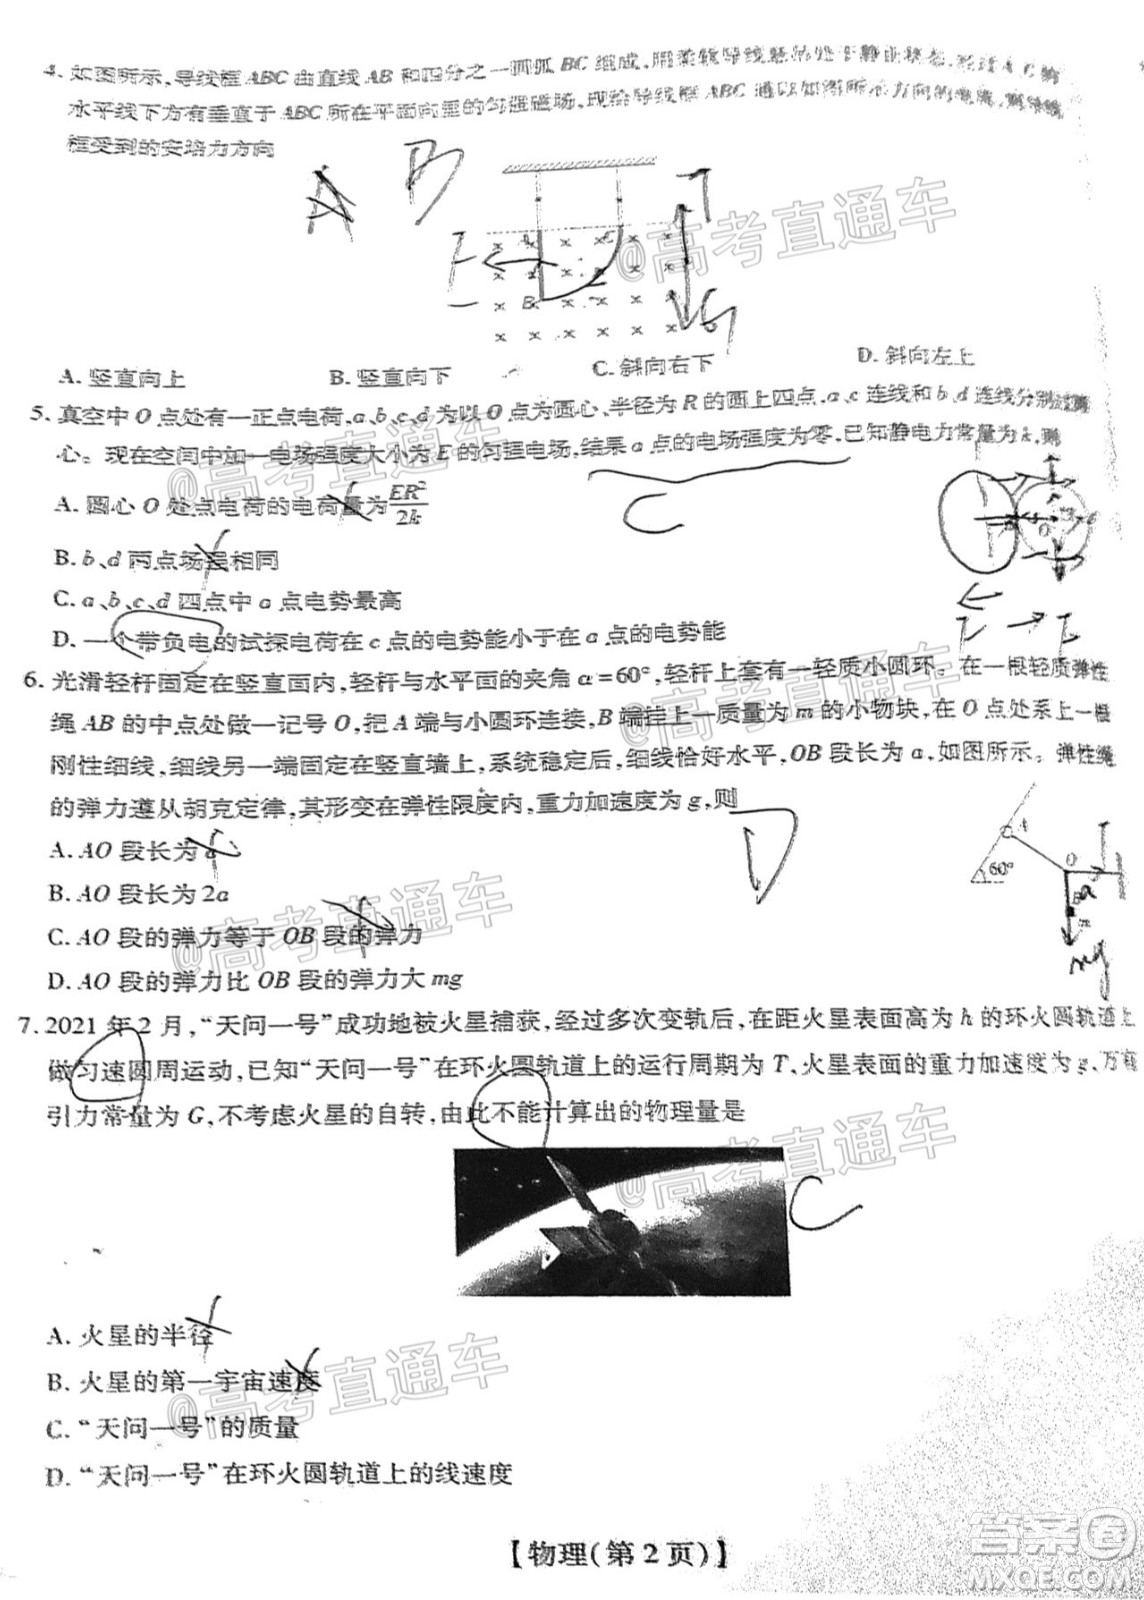 4. 如图所示,导线框 ABC 由直线 AB 和四分之一圆弧 BC 组成,用柔软导线悬吊处于静止状态,
水平线下方有垂直于 ABC 所在平面向里的匀强磁场,现给导线框 ABC 通以如图所示方向的电流,
框受到的安培力方向
A B
F I G
B C
A. 竖直向上 B. 竖直向下 C. 斜向右下 D. 斜向左上
5. 真空中 O 点处有一正点电荷,a、b、c、d 为以 O 点为圆心,半径为 R 的圆上四点,a、c 连线和 b、d 连线分别过圆
心。现在空间中加一电场强度大小为 E 的匀强电场,结果 a 点的电场强度为零,已知静电力常量为 k,则
A. 圆心 O 处点电荷的电荷量为 ER²/2k
C
B. b、d 两点场强相同
C. a、b、c、d 四点中 a 点电势最高
E E
D. 一个带负电的试探电荷在 c 点的电势能小于在 a 点的电势能
6. 光滑轻杆固定在竖直面内,轻杆与水平面的夹角 α=60°,轻杆上套有一轻质小圆环。在一根轻质弹性
绳 AB 的中点处做一记号 O,把 A 端与小圆环连接,B 端挂上一质量为 m 的小物块,在 O 点处系上一根
刚性细线,细线另一端固定在竖直墙上,系统稳定后,细线恰好水平,OB 段长为 a,如图所示。弹性绳
的弹力遵从胡克定律,其形变在弹性限度内,重力加速度为 g,则
D
A. AO 段长为 a
A O 60° a
B. AO 段长为 2a
C. AO 段的弹力等于 OB 段的弹力
mg
D. AO 段的弹力比 OB 段的弹力大 mg
7. 2021 年 2 月,“天问一号”成功地被火星捕获,经过多次变轨后,在距火星表面高为 h 的环火圆轨道上
做匀速圆周运动,已知“天问一号”在环火圆轨道上的运行周期为 T,火星表面的重力加速度为 g、万有
引力常量为 G,不考虑火星的自转,由此不能计算出的物理量是
C
A. 火星的半径
B. 火星的第一宇宙速度
C. “天问一号”的质量
D. “天问一号”在环火圆轨道上的线速度
【物理(第 2 页)】
@高考直通车
@高考直通车
@高考直通车
@高考直通车
@高考直通车
@高考直通车
答案卷
MXQE.COM